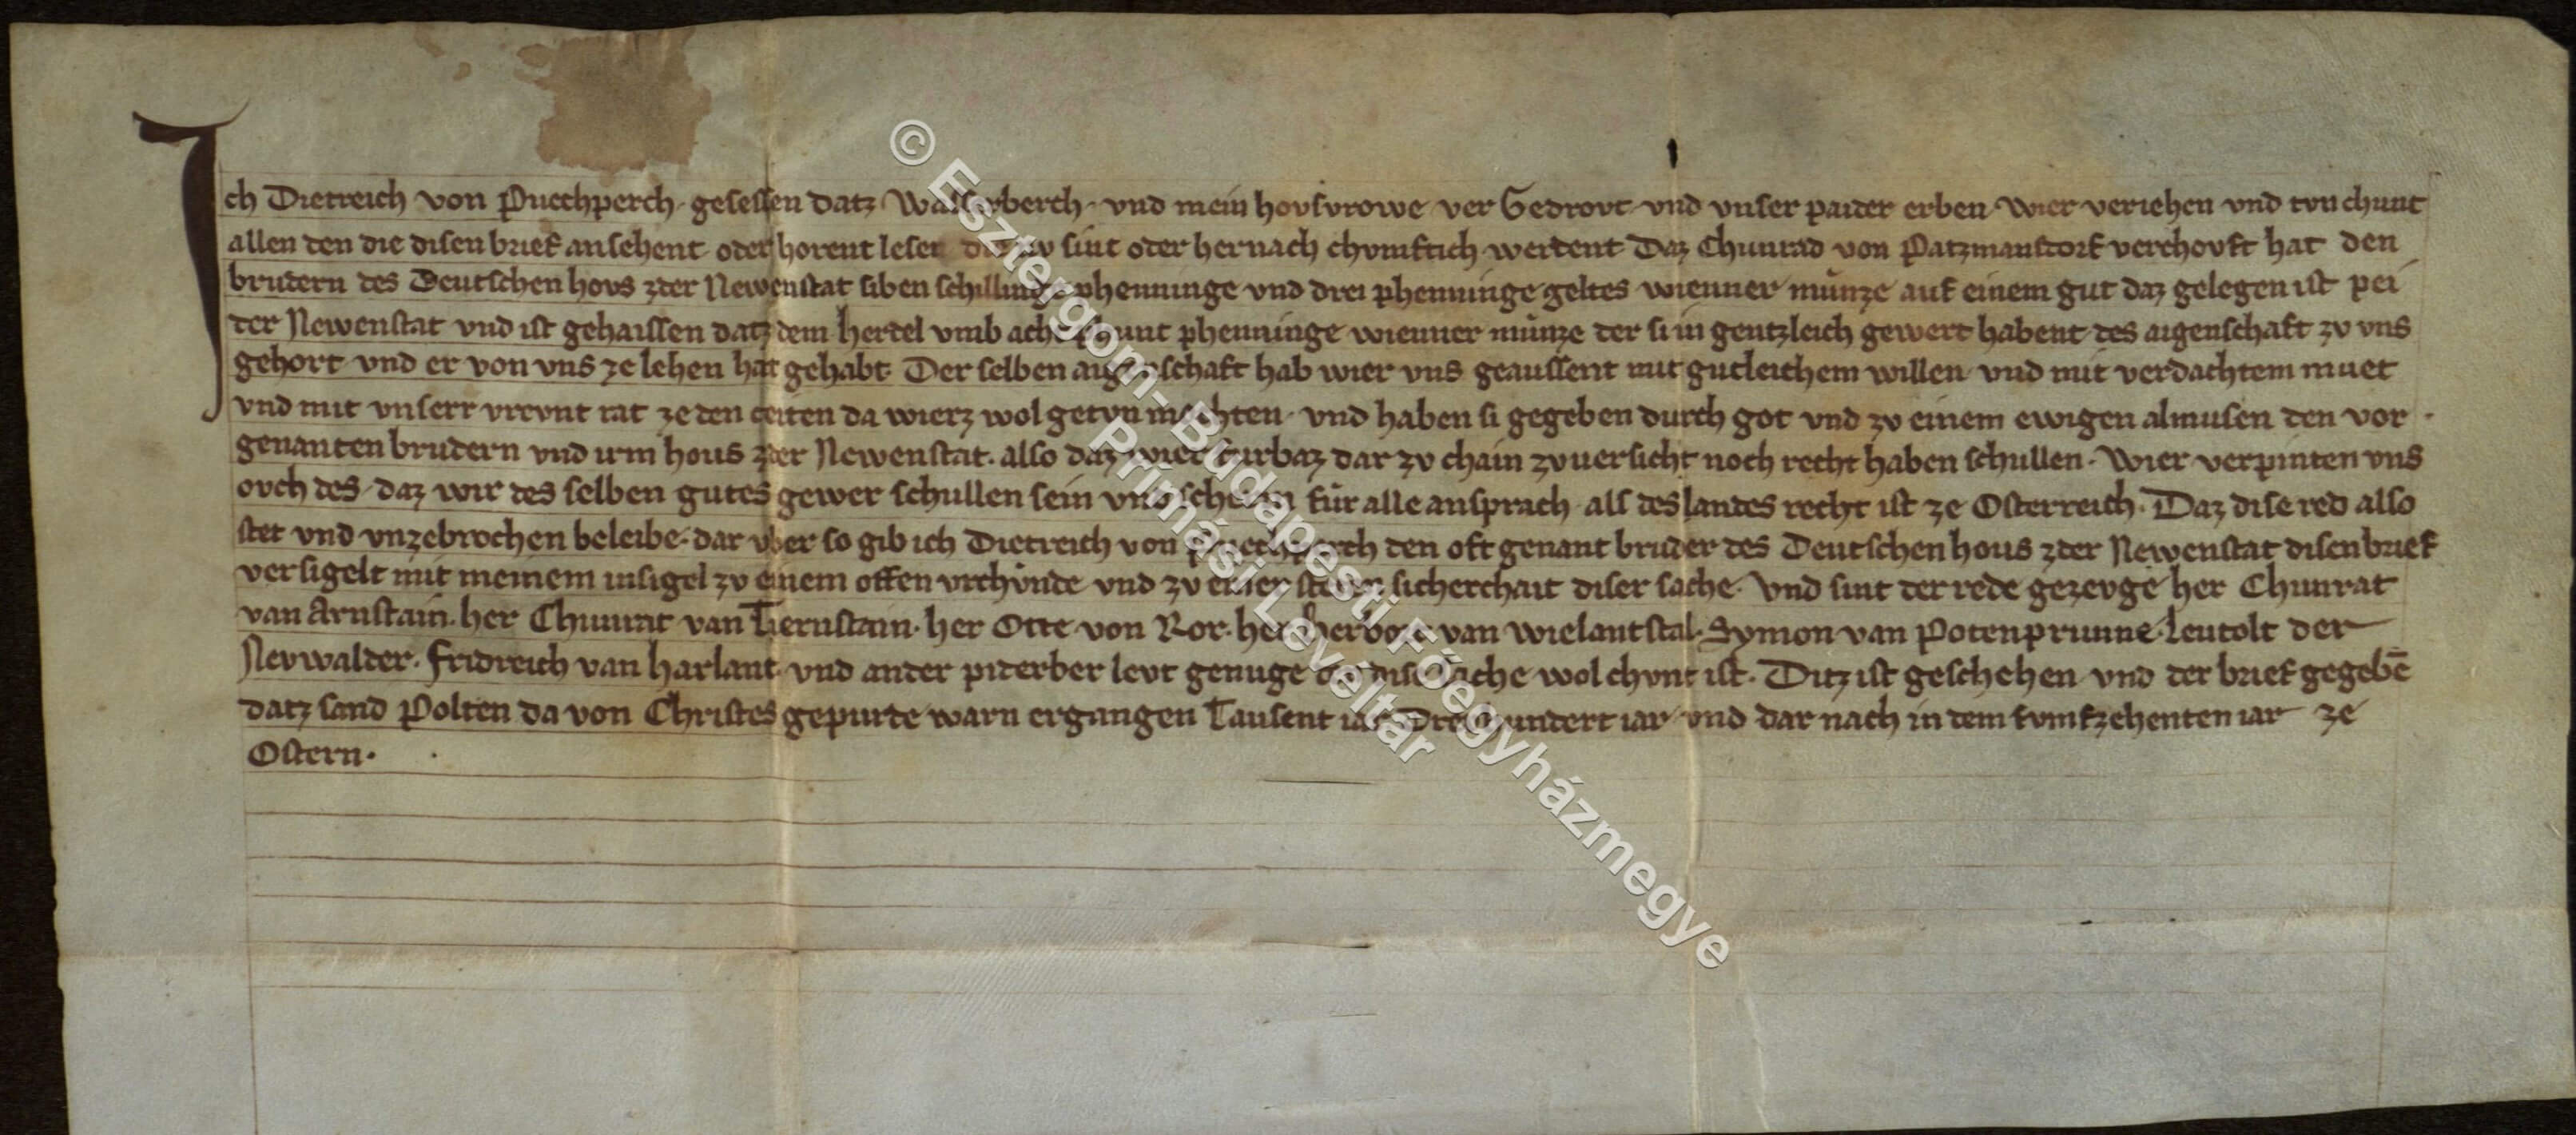 Ich Dietreich von Puechperch gesessen datz Wasserberch vnd mein hovsvrowe ver Gedrovt vnd vnser paider erben wier veriehen vnd tvn chunt
allen den die disen brief ansehent oder horent lesen die nv sint oder hernach chvmftich werdent Daz Chunrad von Patzmanstorf verchovft hat den
brudern des Deutschen hovs zder Newenstat siben schillinge phenninge vnd drei phenninge geltes wienner munze auf einem gut daz gelegen ist pei
der Newenstat vnd ist gehaissen datz dem hertel vmb acht phunt phenninge wienner munze der si in gentzleich gewert habent des aigenschaft zv vns
gehort vnd er von vns ze lehen hat gehabt. Der selben aigenschaft hab wier vns geaussent mit gutleichem willen vnd mit verdachtem muet
vnd mit vnserr vrevnt rat ze den ceiten da wierz wol getvn mochten. vnd haben si gegeben durch got vnd zv einem ewigen almusen den vor
genanten brudern vnd irm hous zder Newenstat. also daz wier furbaz dar zv chain zvuersicht noch recht haben schullen. Wier verpinten vns
ovch des daz wir des selben gutes gewer schullen sein vnd scherm fur alle ansprach als des landes recht ist ze Osterreich. Daz dise red also
stet vnd vnzebrochen beleibe. dar vber so gib ich Dietreich von Puechperch den oft genant bruder des Deutschen hous zder Newenstat disen brief
versigelt mit meinem insigel zv einem offen vrchunde vnd zv einer steten sicherchait diser sache. Vnd sint der rede gezevge her Chunrat
van Arnstain. her Chunrat van Ternstain. her Otte von Ror. her herwort van wielantstal. Symon van Potenprunne. Leutolt der
Nevwalder. fridreich van harlant. vnd ander piderber levt genuge den dise sache wol chvnt ist. Ditz ist geschehen vnd der brief gegebē
datz sand Polten da von Christes gepurte warn ergangen Tausent iar Dreuhundert iar vnd dar nach in dem fvmfzehenten iar ze
Ostern.
© Esztergom-Budapesti Főegyházmegye
Prímási Levéltár